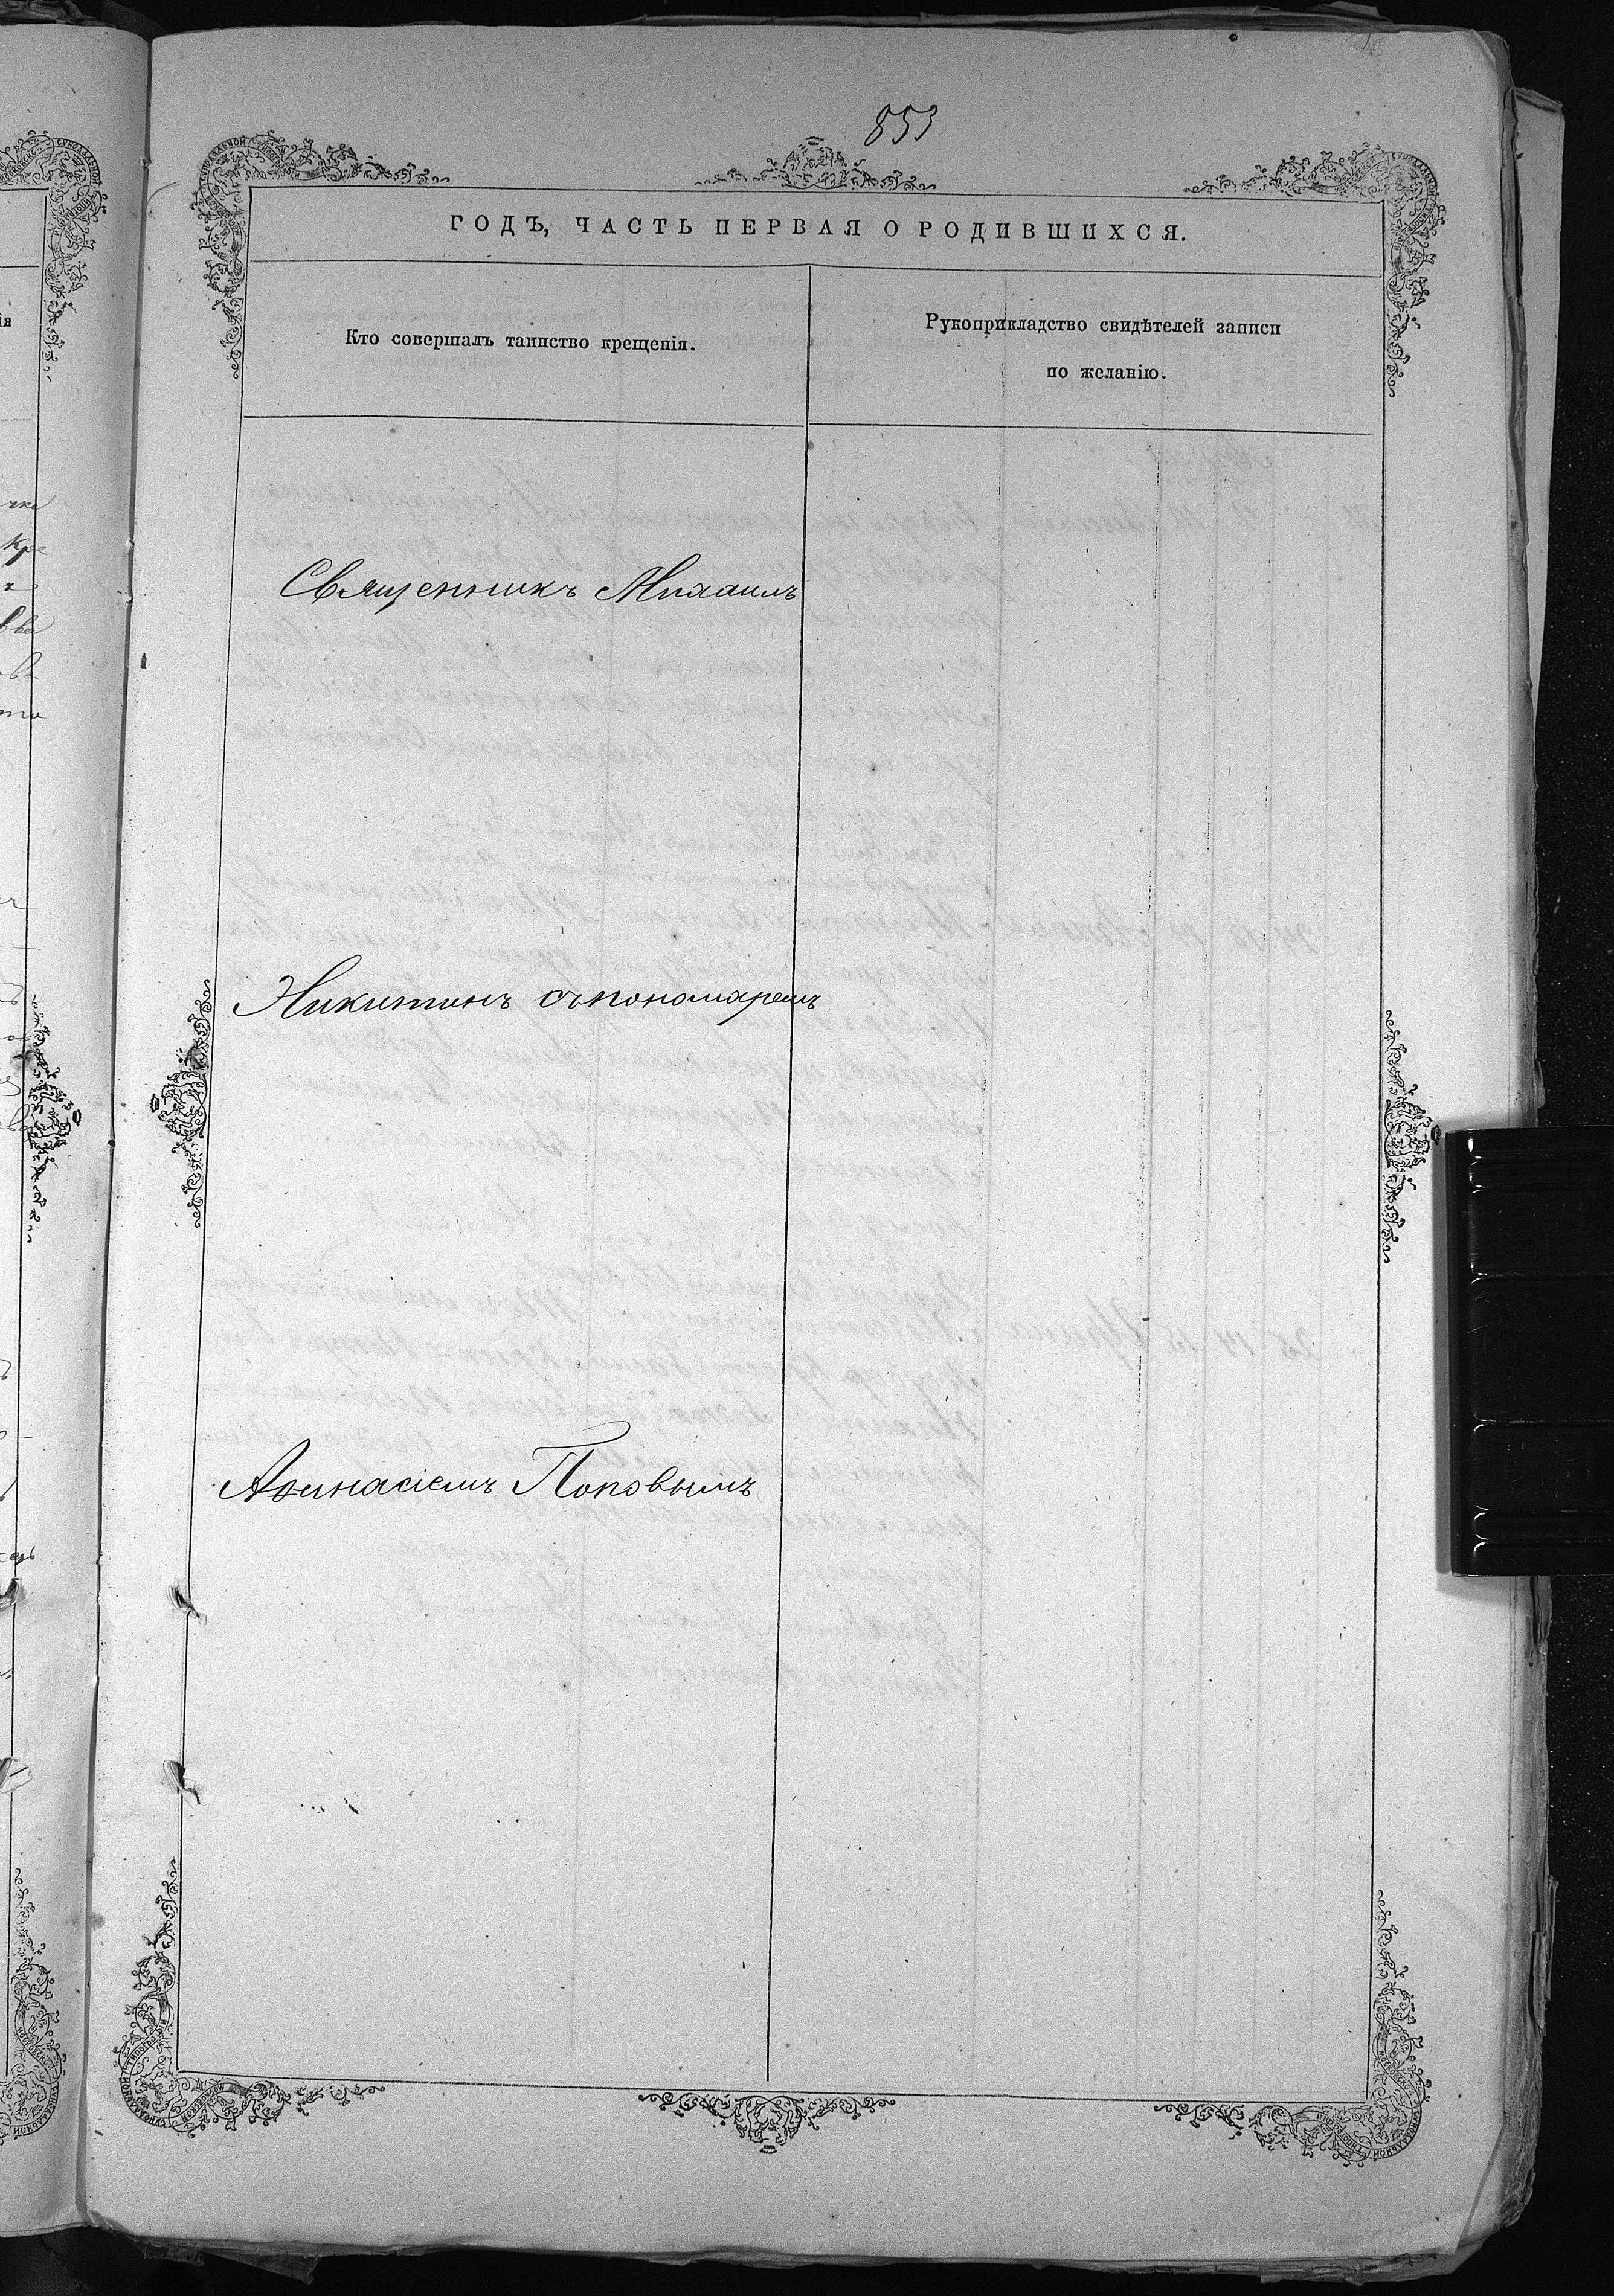 853
ГОДЪ, ЧАСТЬ ПЕРВАЯ О РОДИВШИХСЯ.
Кто совершалъ таинство крещенія.
Рукоприкладство свидѣтелей записи
по желанію.
Священникъ Михаилъ
Никитинъ съ пономаремъ
Аѳанасіемъ Поповымъ